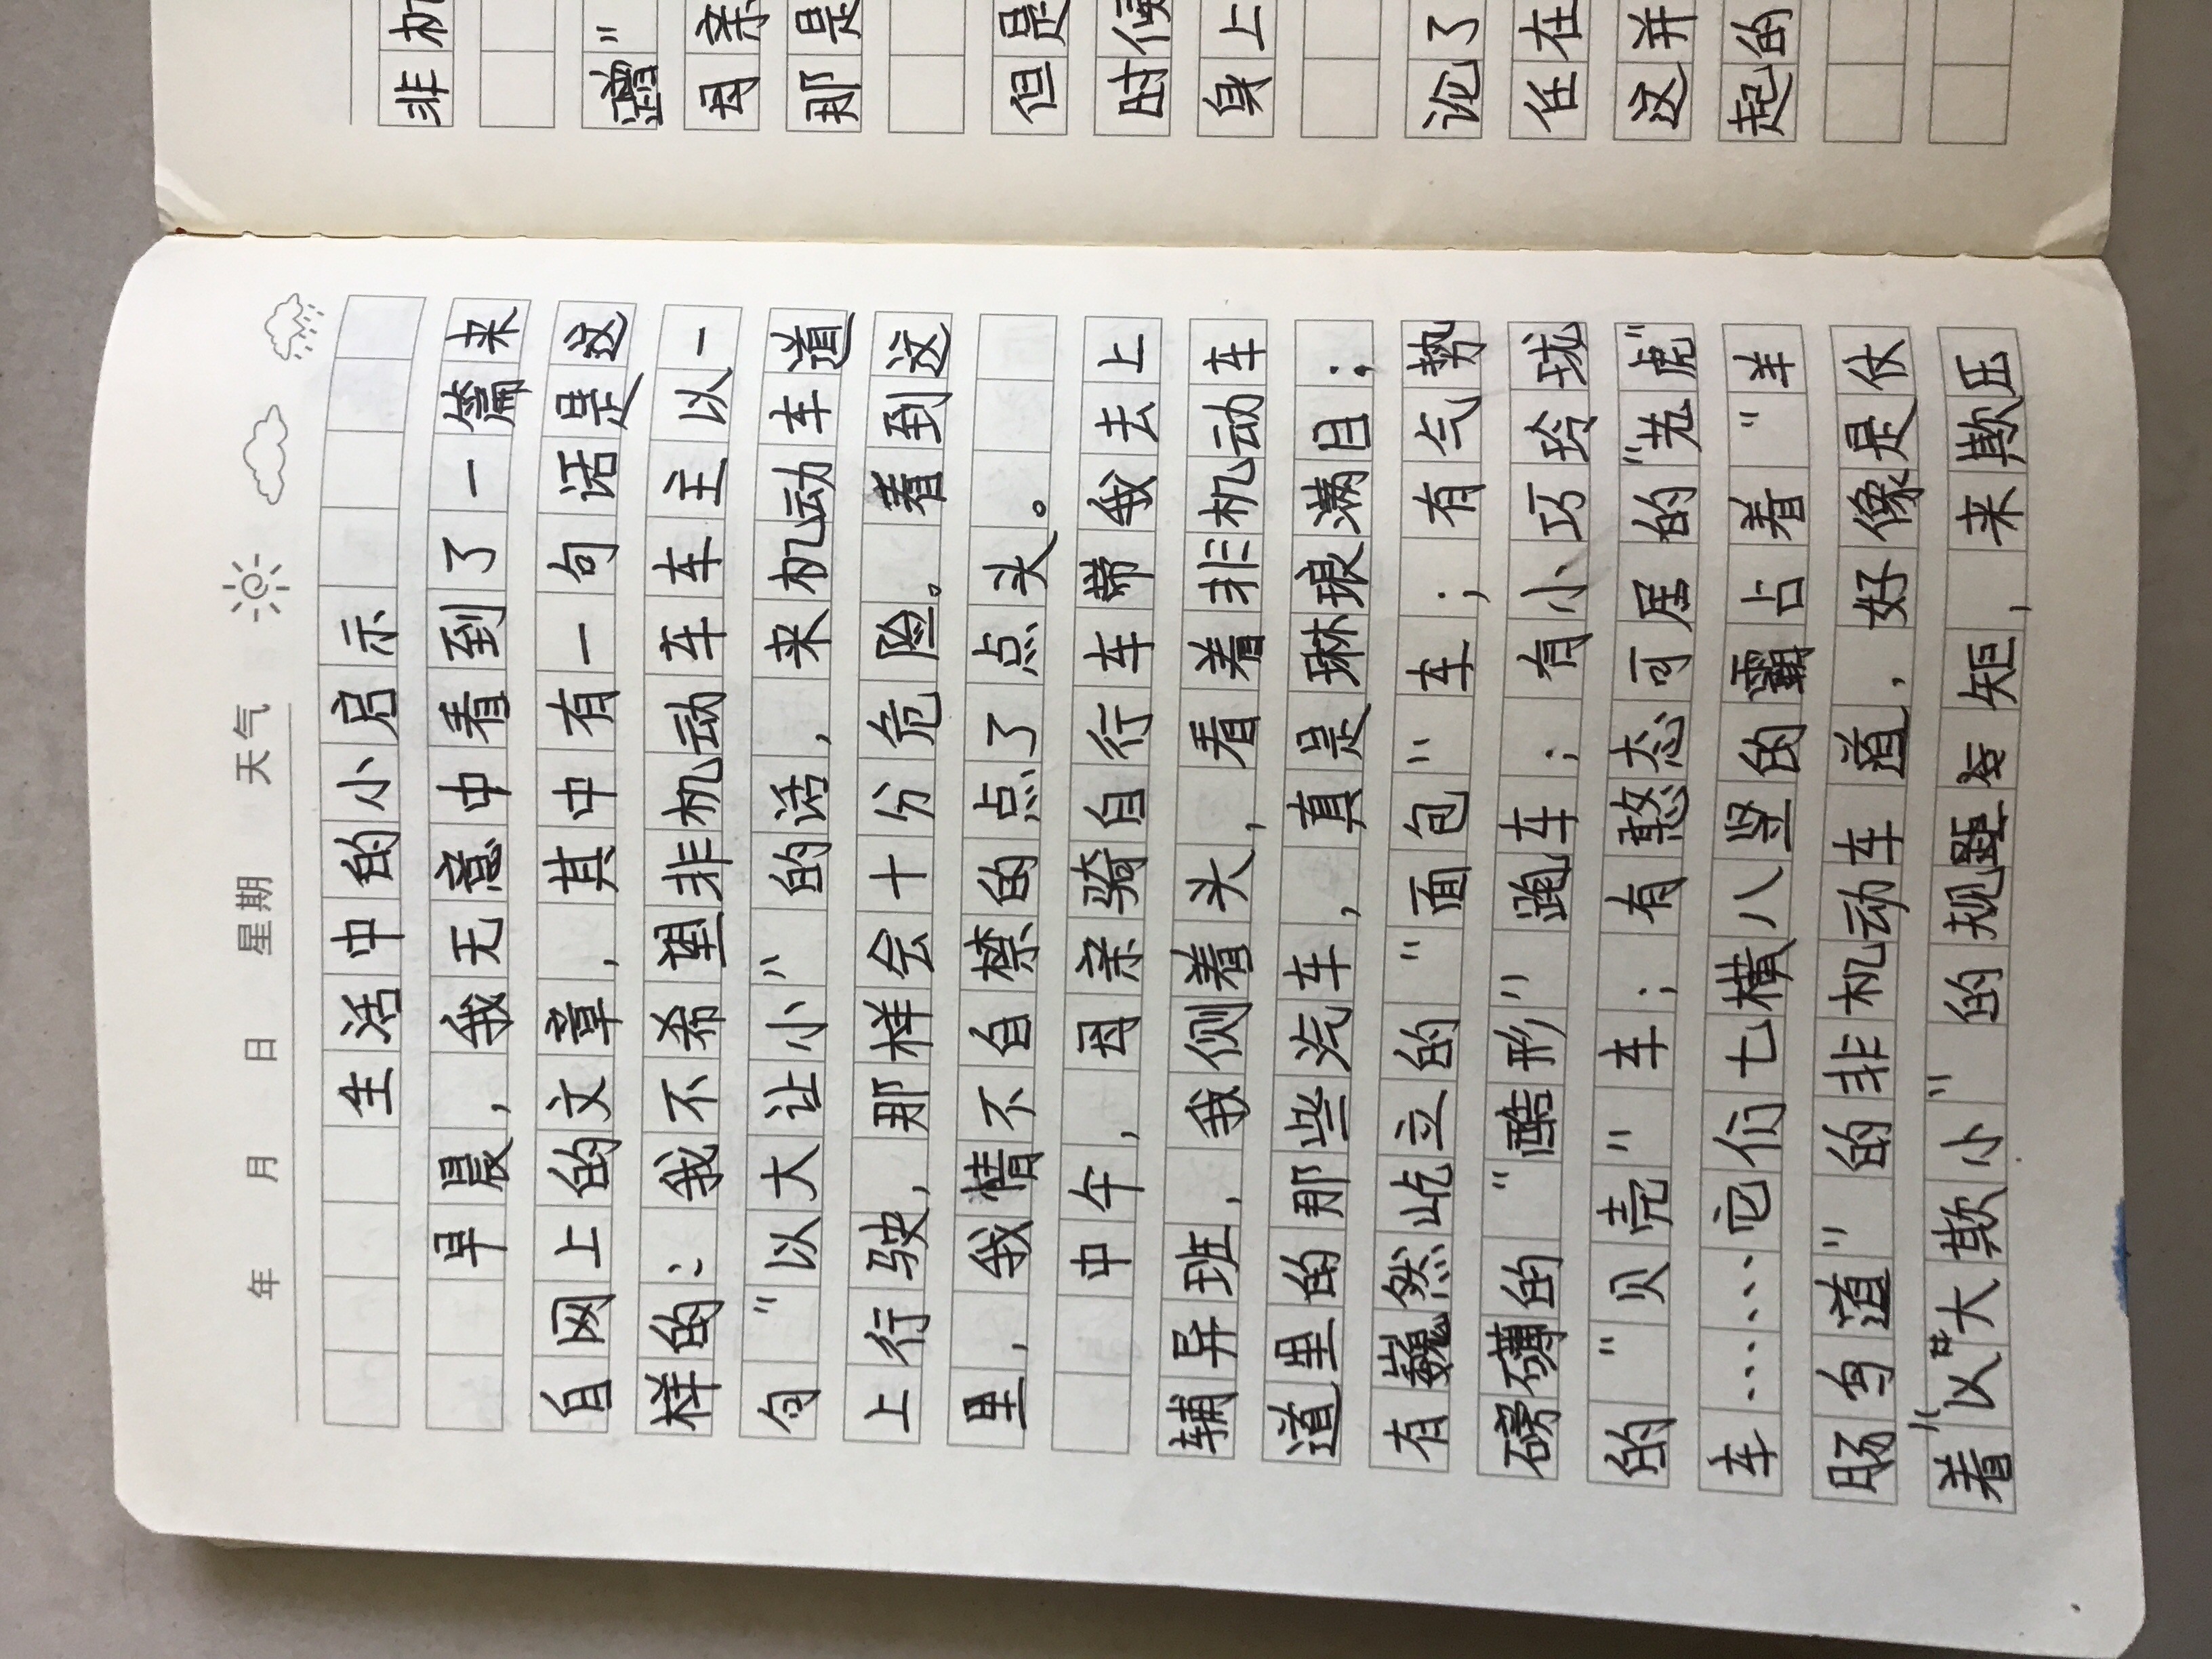 年 月 日 星期 天气
生活中的小启示
早晨，我无意中看到了一篇来
自网上的文章，其中有一句话是这
样的：我不希望非机动车车主以一
句“以大让小”的话，来机动车道
上行驶，那样会十分危险。看到这
里，我情不自禁的点了点头。
中午，母亲骑自行车带我去上
辅导班，我侧着头，看着非机动车
道里的那些汽车，真是琳琅满目：
有巍然屹立的“面包”车；有气势
磅礴的“酷形”跑车；有小巧玲珑
的“贝壳”车；有憨态可居的“老虎”
车……它们七横八竖的霸占着“羊
肠鸟道”的非机动车道，好像是仗
着“以大欺小”的规矩，来欺压
非机
”
母亲
那是
但是
时候
身上
论了
任在
这并
起的